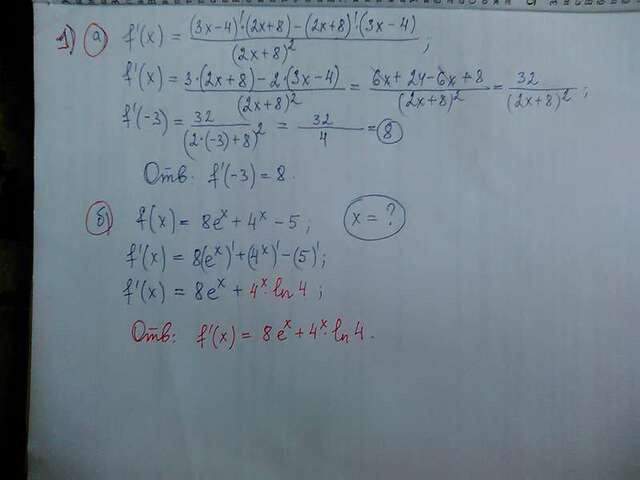 1) а) f'(x) = ((3x-4)'·(2x+8) - (2x+8)'·(3x-4))/(2x+8)² ;
f'(x) = (3·(2x+8) - 2·(3x-4))/(2x+8)² = (6x+24-6x+8)/(2x+8)² = 32/(2x+8)² ;
f'(-3) = 32/(2·(-3)+8)² = 32/4 = 8
Отв: f'(-3) = 8.
б) f(x) = 8eˣ + 4ˣ - 5 ; x = ?
f'(x) = 8(eˣ)' + (4ˣ)' - (5)' ;
f'(x) = 8eˣ + 4ˣ·ln 4 ;
Отв: f'(x) = 8eˣ + 4ˣ·ln 4.